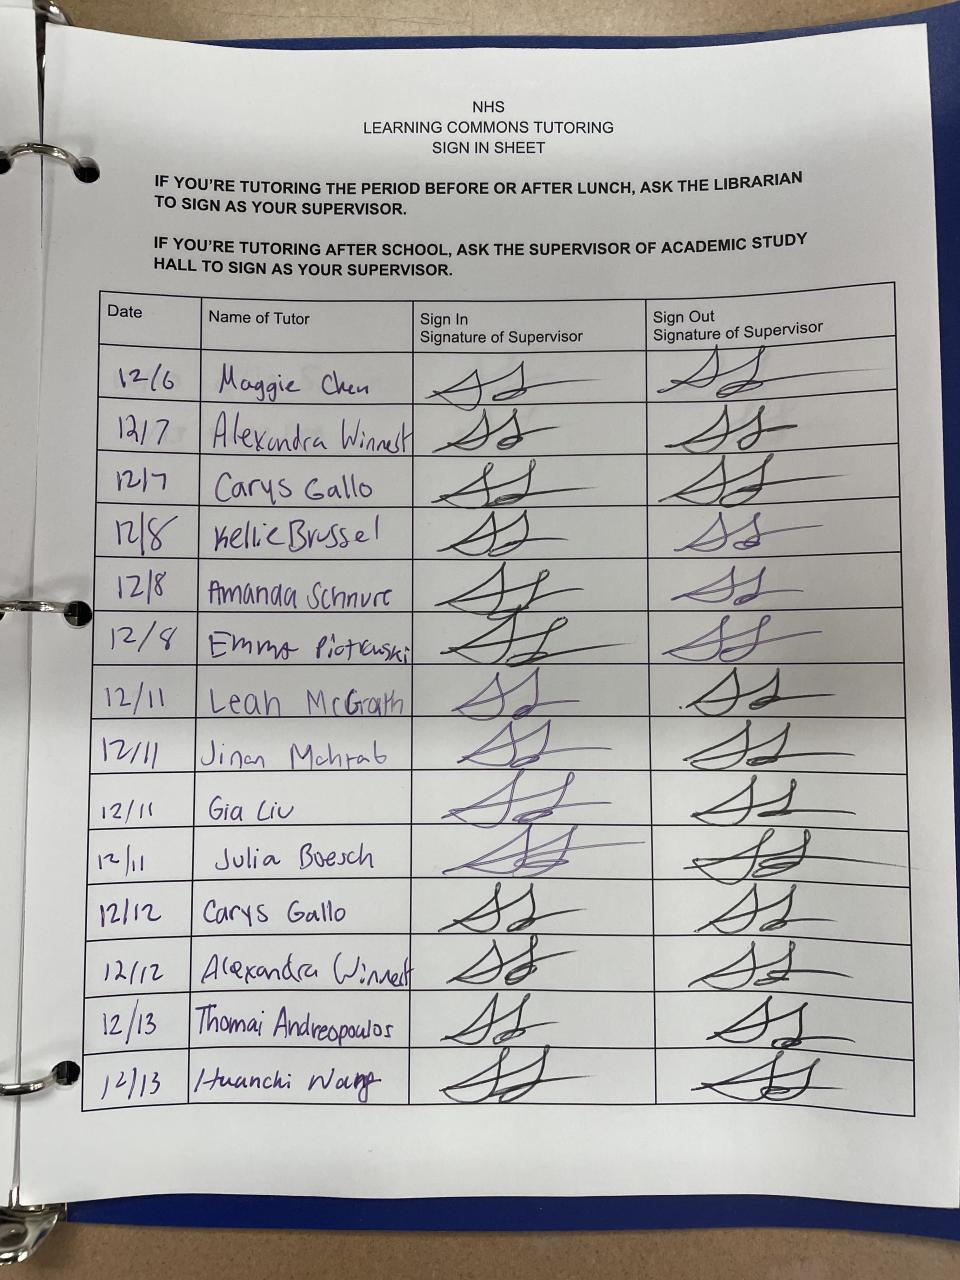 NHS
LEARNING COMMONS TUTORING
SIGN IN SHEET
IF YOU'RE TUTORING THE PERIOD BEFORE OR AFTER LUNCH, ASK THE LIBRARIAN
TO SIGN AS YOUR SUPERVISOR.
IF YOU'RE TUTORING AFTER SCHOOL, ASK THE SUPERVISOR OF ACADEMIC STUDY
HALL TO SIGN AS YOUR SUPERVISOR.
Date Name of Tutor Sign In Sign Out
Signature of Supervisor Signature of Supervisor
12/6 Maggie Chen
12/7 Alexandra Winnest
12/7 Carys Gallo
12/8 Kellie Brussel
12/8 Amanda Schnure
12/8 Emma Piotrowski
12/11 Leah McGrath
12/11 Jinan Mahrab
12/11 Gia Liu
12/11 Julia Boesch
12/12 Carys Gallo
12/12 Alexandra Winnest
12/13 Thomai Andreopoulos
12/13 Huanchi Wang